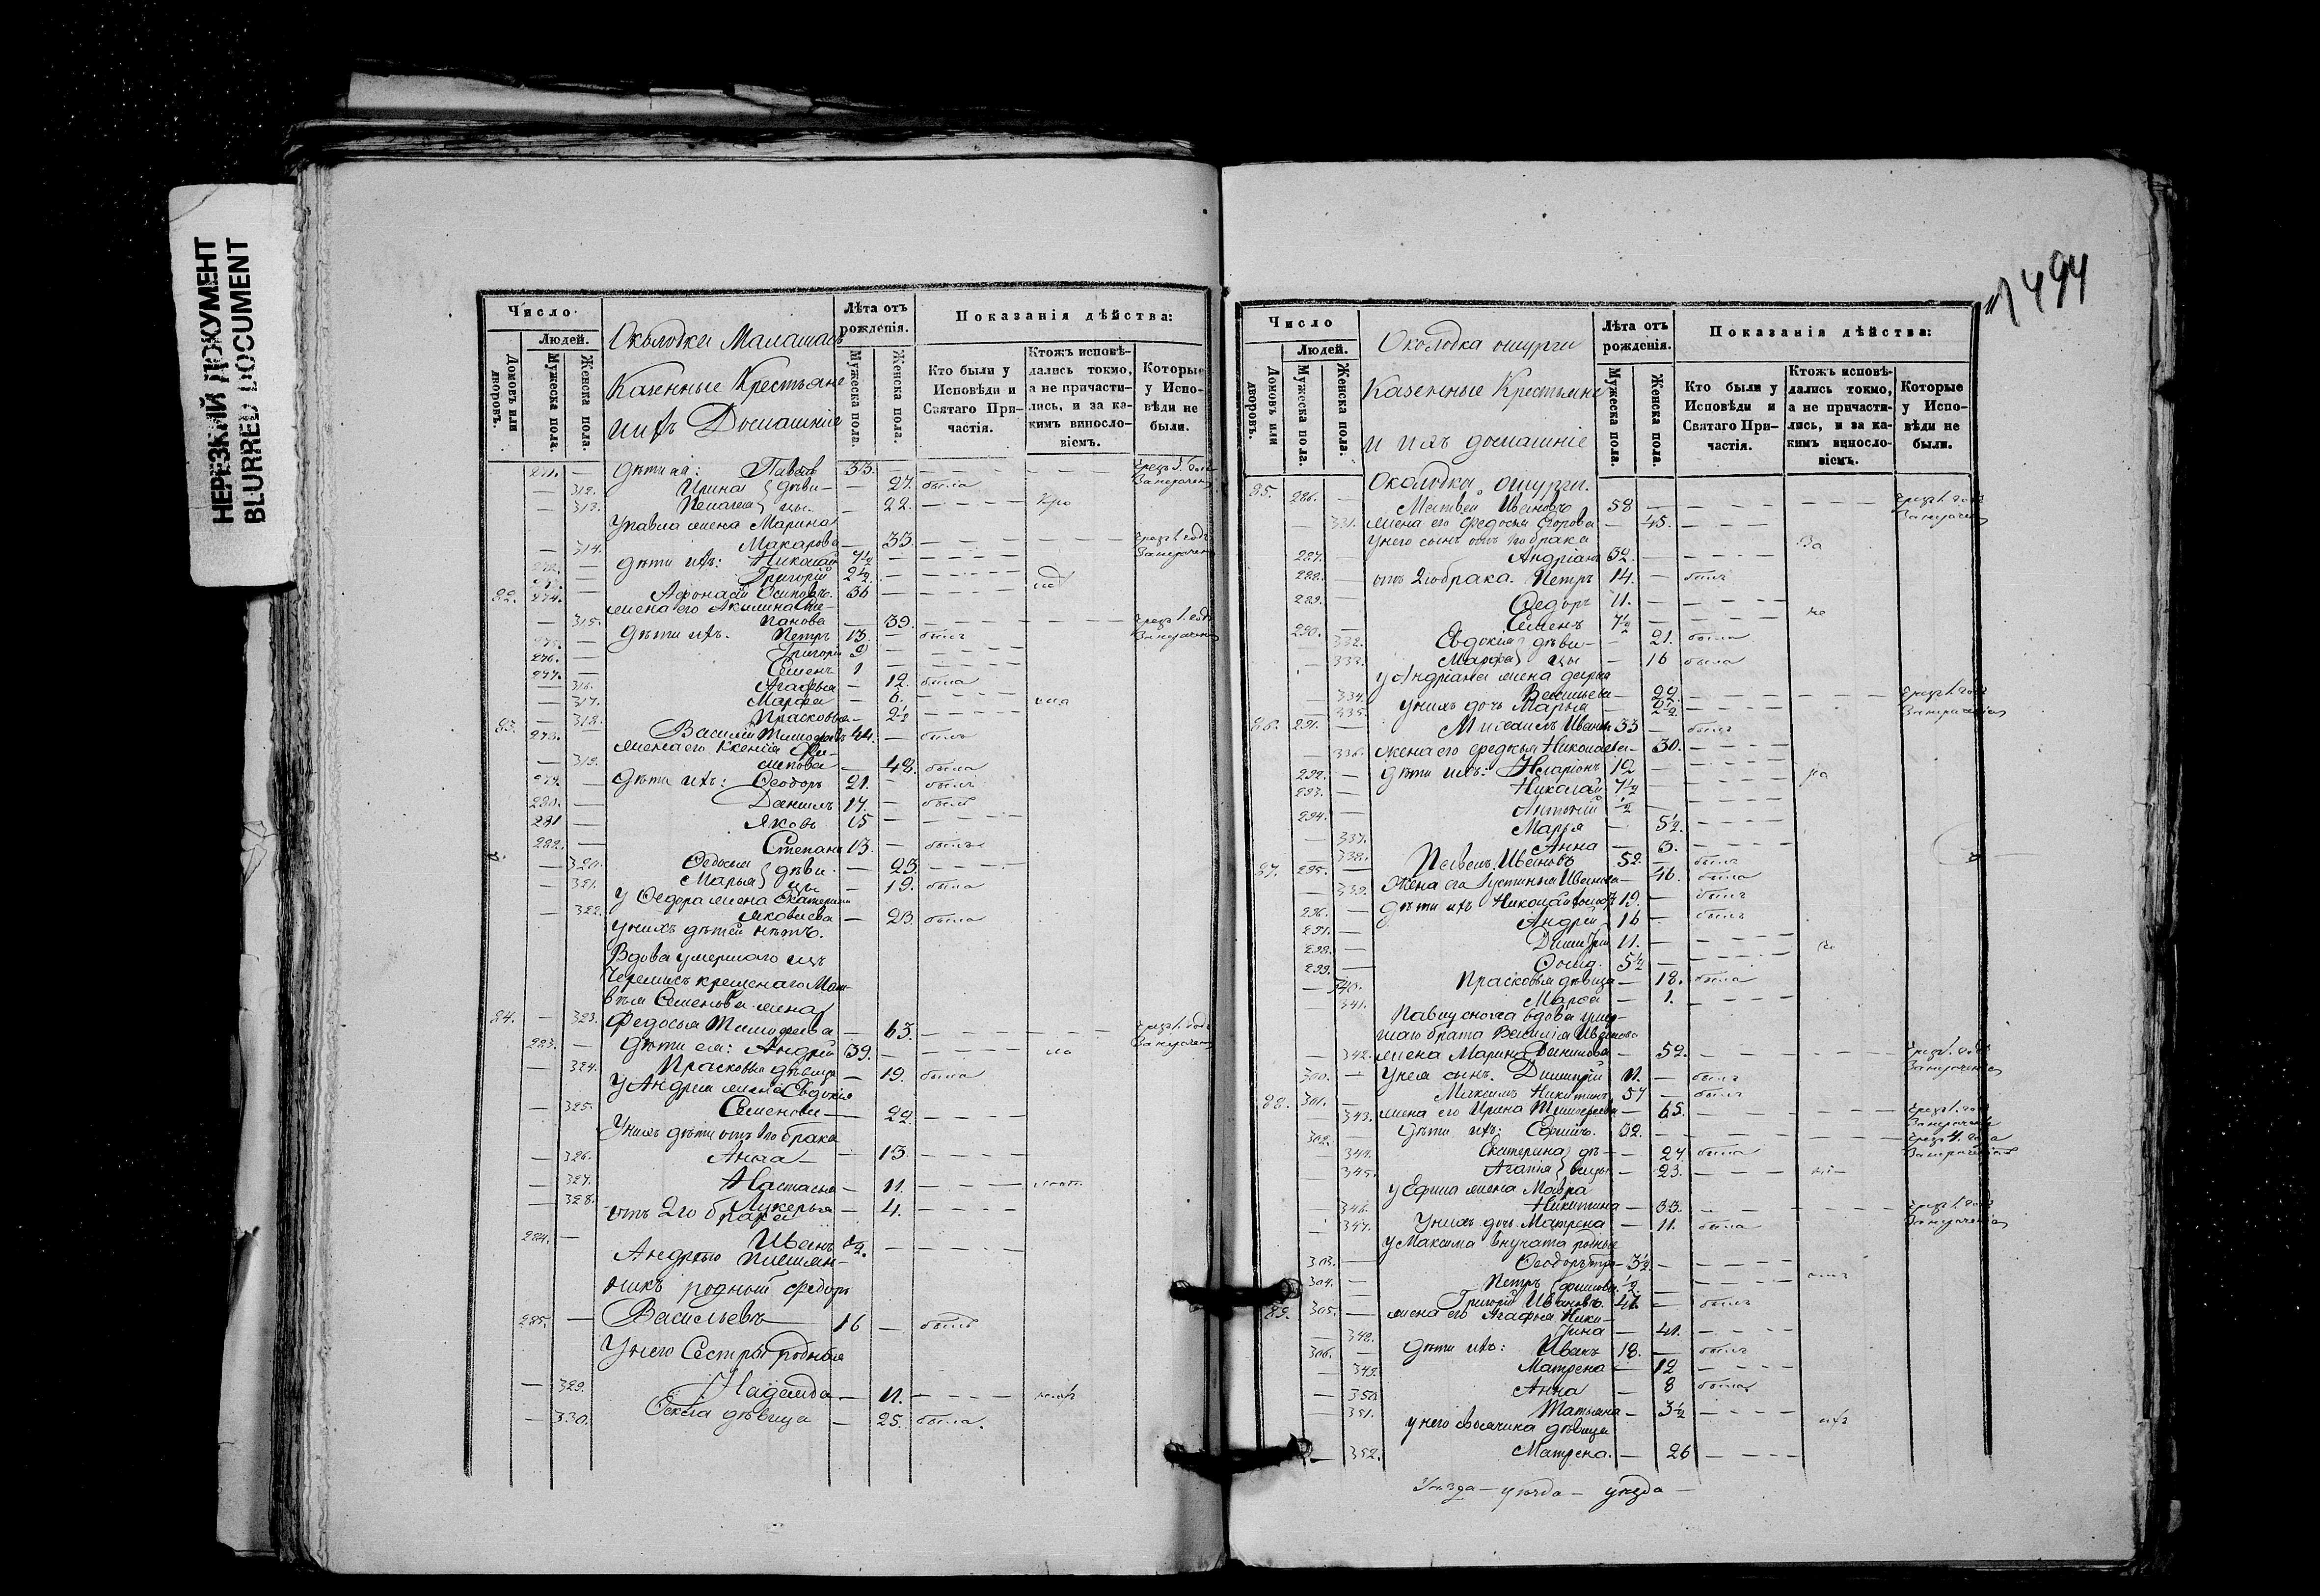 НЕРЕЗКИЙ ДОКУМЕНТ
BLURRED DOCUMENT
Число
Людей.
Домовъ или дворовъ.
Мужеска пола.
Женска пола.
Казенные Крестьяне
ихъ Домашніе
Лѣта отъ рожденія.
Мужеска пола.
Женска пола.
Показанія дѣйства:
Кто были у Исповѣди и Святаго Причастія.
Ктожъ исповѣдались токмо, а не причастились, и за какимъ винословіемъ.
Которые у Исповѣди не были.
271. — дѣти ея: Павелъ 33. —
— 312. Ирина } дѣви- — 27. была
— 313. Пелагея } цы. — 22.
У Павла жена Марина
— 314. Макарова — 33.
272. — дѣти ихъ: Николай 7½ —
273. — Григорій 2½ —
82. 274. — Афонасій Осиповъ. 36 —
жена его Акилина Сте-
— 315. панова — 39.
275. — дѣти ихъ. Петръ 13. — былъ
276. — Григорій 9 —
277. — Семенъ 1 —
— 316. Агафья — 12. была
— 317. Марфа — 6.
— 318. Прасковья — 2½
83. 278. — Василій Тимофеевъ 44. — былъ
жена его Ксенія Фи-
— 319. липова — 48. была
279. — дѣти ихъ: Ѳеодоръ 21. — былъ
280. — Даниилъ 17. — былъ
281 — Яковъ 15 —
282. — Степанъ 13. — былъ
— 320. Ѳедосья } дѣви- — 23.
— 321. Марья } цы — 19. была
У Ѳедора жена Екатерина
— 322. Яковлева — 23 была
У нихъ дѣтей нѣтъ.
Вдова умершаго изъ
Черемисъ крещенаго Мат-
вѣя Семенова жена
84. — 323. Федосья Тимофеева — 63.
283. — дѣти ея: Андрей 39. —
— 324. Прасковья дѣвица — 19. была
У Андрея жена Евдокія
— 325. Семенова — 22.
У нихъ дѣти отъ 1го брака
— 326. Анна — 13
— 327. Настасья — 11.
— 328. Лукерья — 4.
отъ 2го брака
284. — Иванъ ½. —
Андрею племян-
никъ родный Федоръ
285. — Васильевъ 16 — былъ
У него Сестры родныя
— 329. Надежда — 11.
— 330. Ѳекла дѣвица — 25. была.
494
Число
Людей.
Домовъ или дворовъ.
Мужеска пола.
Женска пола.
Околодка ошурги
Казенные Крестьяне
и ихъ домашніе
Лѣта отъ рожденія.
Мужеска пола.
Женска пола.
Показанія дѣйства:
Кто были у Исповѣди и Святаго Причастія.
Ктожъ исповѣдались токмо, а не причастились, и за какимъ винословіемъ.
Которые у Исповѣди не были.
Околодка ошурги.
85. 286. — Матвей Ивановъ 58 —
— 331. жена его Федосья Егорова — 45.
У него сынъ отъ 1го брака За
287. — Андріанъ 32. —
288. — отъ 2го брака. Петръ 14. — былъ
289. — Ѳедоръ 11. —
290. — Семенъ 7½ —
— 332. Евдокія } дѣви- — 21. была
— 333. Марфа } цы — 16 была
У Андріана жена Дарья
— 334. Васильева — 22.
— 335. У нихъ дочь Марья — 2½.
86. 291. — Михаилъ Ивановъ 33 — былъ
— 336. жена его Федосья Николаева — 30.
292. — дѣти ихъ: Иларіонъ 12 —
293. — Николай 7½ —
294. — Антоній ½ —
— 337. Марья — 5½.
— 338. Анна — 3.
87. 295. — Павелъ Ивановъ 52. — былъ
— 339. Жена его Устинья Иванова — 46. была
296. — дѣти ихъ Николай 19. — былъ
297. — Андрей 16 — былъ
298. — Димитрій 11. —
299. — Ѳома. 5½ —
— 340. Прасковья дѣвица — 18. была
— 341. Марфа — 1.
Павлу сноха вдова умер-
шаго брата Василія Иванова
— 342. жена Марина Данилова — 52.
300. — У нея сынъ. Димитрій 11. — былъ
88. 301. — Максимъ Никитинъ 57 — былъ
— 343. жена его Ирина Тимофеева — 65.
302. — Дѣти ихъ: Ефимъ. 32. —
— 344. Екатерина } дѣ- — 27 была
— 345. Агапія } вицы — 23.
У Ефима жена Мавра
— 346. Никитина — 33.
— 347. У нихъ дочь Матрена — 11. была
У Максима внучата родные
303. — Ѳеодоръ 3½ —
304. — Петръ ½ —
89. 305. — Григорій Ивановъ. 47 — былъ
жена его Агафья Ники-
— 348. тина — 41.
306. — Дѣти ихъ: Иванъ 18. — былъ
— 349. Матрена — 12
— 350 Анна — 8 была
— 351. Татьяна — 3½
У него своячина дѣвица
— 352. Матрена. — 26
уѣзда — уѣзда — уѣзда —